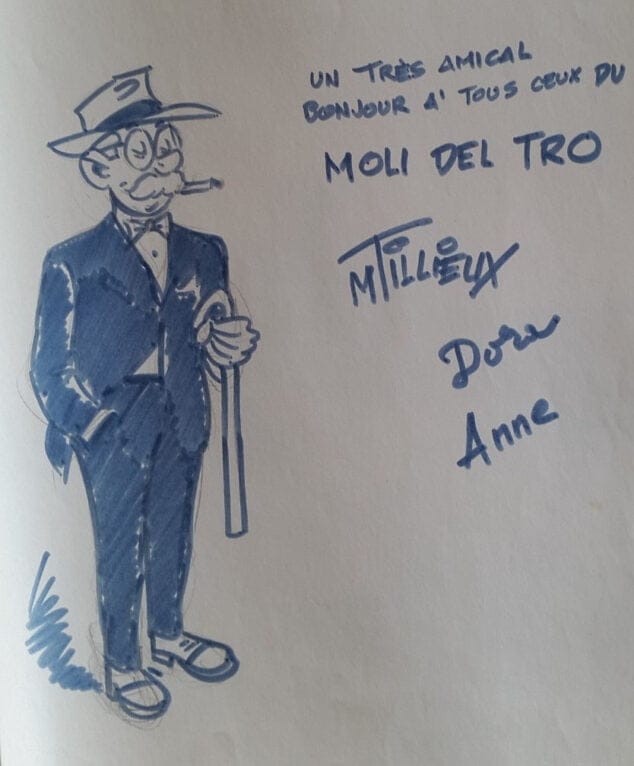 UN TRÈS AMICAL
BONJOUR A' TOUS CEUX DU
MOLI DEL TRO
MTILLIEUX
Dora
Anne